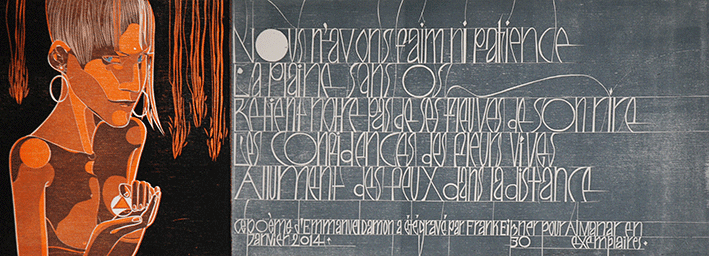 Nous n'avons faim ni patience
La plaine sans os
Retient notre pas de ses fleuves de son rire
Les confidences des fleurs vives
Allument des feux dans la distance
Ce poème d'Emmanuel Damon a été gravé par Frank Eißner pour Almanar en
janvier 2014. 30 exemplaires.